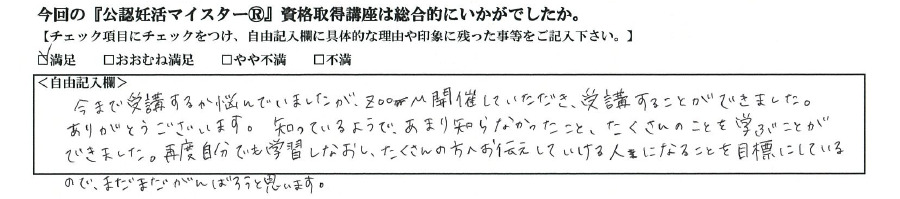 今回の『公認妊活マイスター®』資格取得講座は総合的にいかがでしたか。
【チェック項目にチェックをつけ、自由記入欄に具体的な理由や印象に残った事等をご記入下さい。】
☑満足 □おおむね満足 □やや不満 □不満
＜自由記入欄＞
今まで受講するか悩んでいましたが、zoom開催していただき、受講することができました。
ありがとうございます。知っているようで、あまり知らなかったこと、たくさんのことを学ぶことが
できました。再度自分でも学習しなおし、たくさんの方へお伝えしていける人になることを目標にしている
ので、まだまだがんばろうと思います。